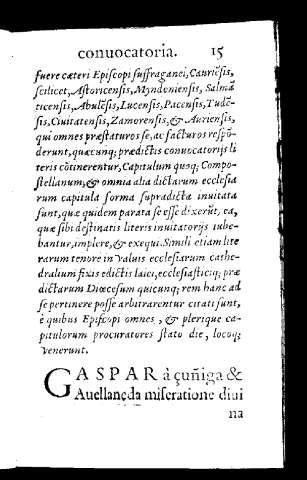 conuocatoria. 15
fuere cæteri Episcopi suffraganei, Cauriẽsis,
scilicet, Astoricensis, Myndoniensis, Salmã
ticensis, Abulẽsis, Lucensis, Pacensis, Tudẽ-
sis, Ciuitatensis, Zamorensis, & Auriensis,
qui omnes præstaturos se, ac facturos respõ-
derunt, quæcunq; prædictis conuocatorijs li
teris cõtinerentur, Capitulum quoq; Compo-
stellanum, & omnia alia dictarum ecclesia
rum capitula forma supradicta inuitata
sunt, quæ quidem parata se esse dixerũt, ea,
quæ sibi destinatis literis inuitatorijs iube-
bantur, implere, & exequi. Simili etiam lite
rarum tenore in valuis ecclesiarum cathe-
dralium fixis edictis laici, ecclesiasticiq; præ
dictarum Diœcesum quicunq; rem hanc ad
se pertinere posse arbitrarentur citati sunt,
è quibus Episcopi omnes, & plerique ca-
pitulorum procuratores stato die, locoq;
venerunt.
GASPAR à çuñiga &
Auellaneda miseratione diui
na